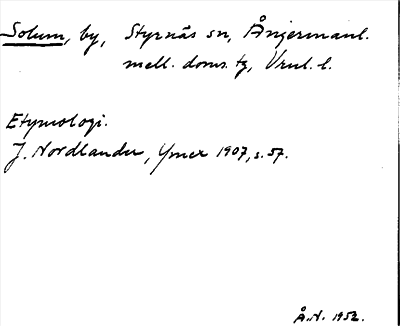 Solum, by, Styrnäs sn, Ångermanl.
mell. doms. tg, Vnl. l.
Etymologi.
J. Nordlander, Ymer 1907, s. 57.
Å.N. 1952.